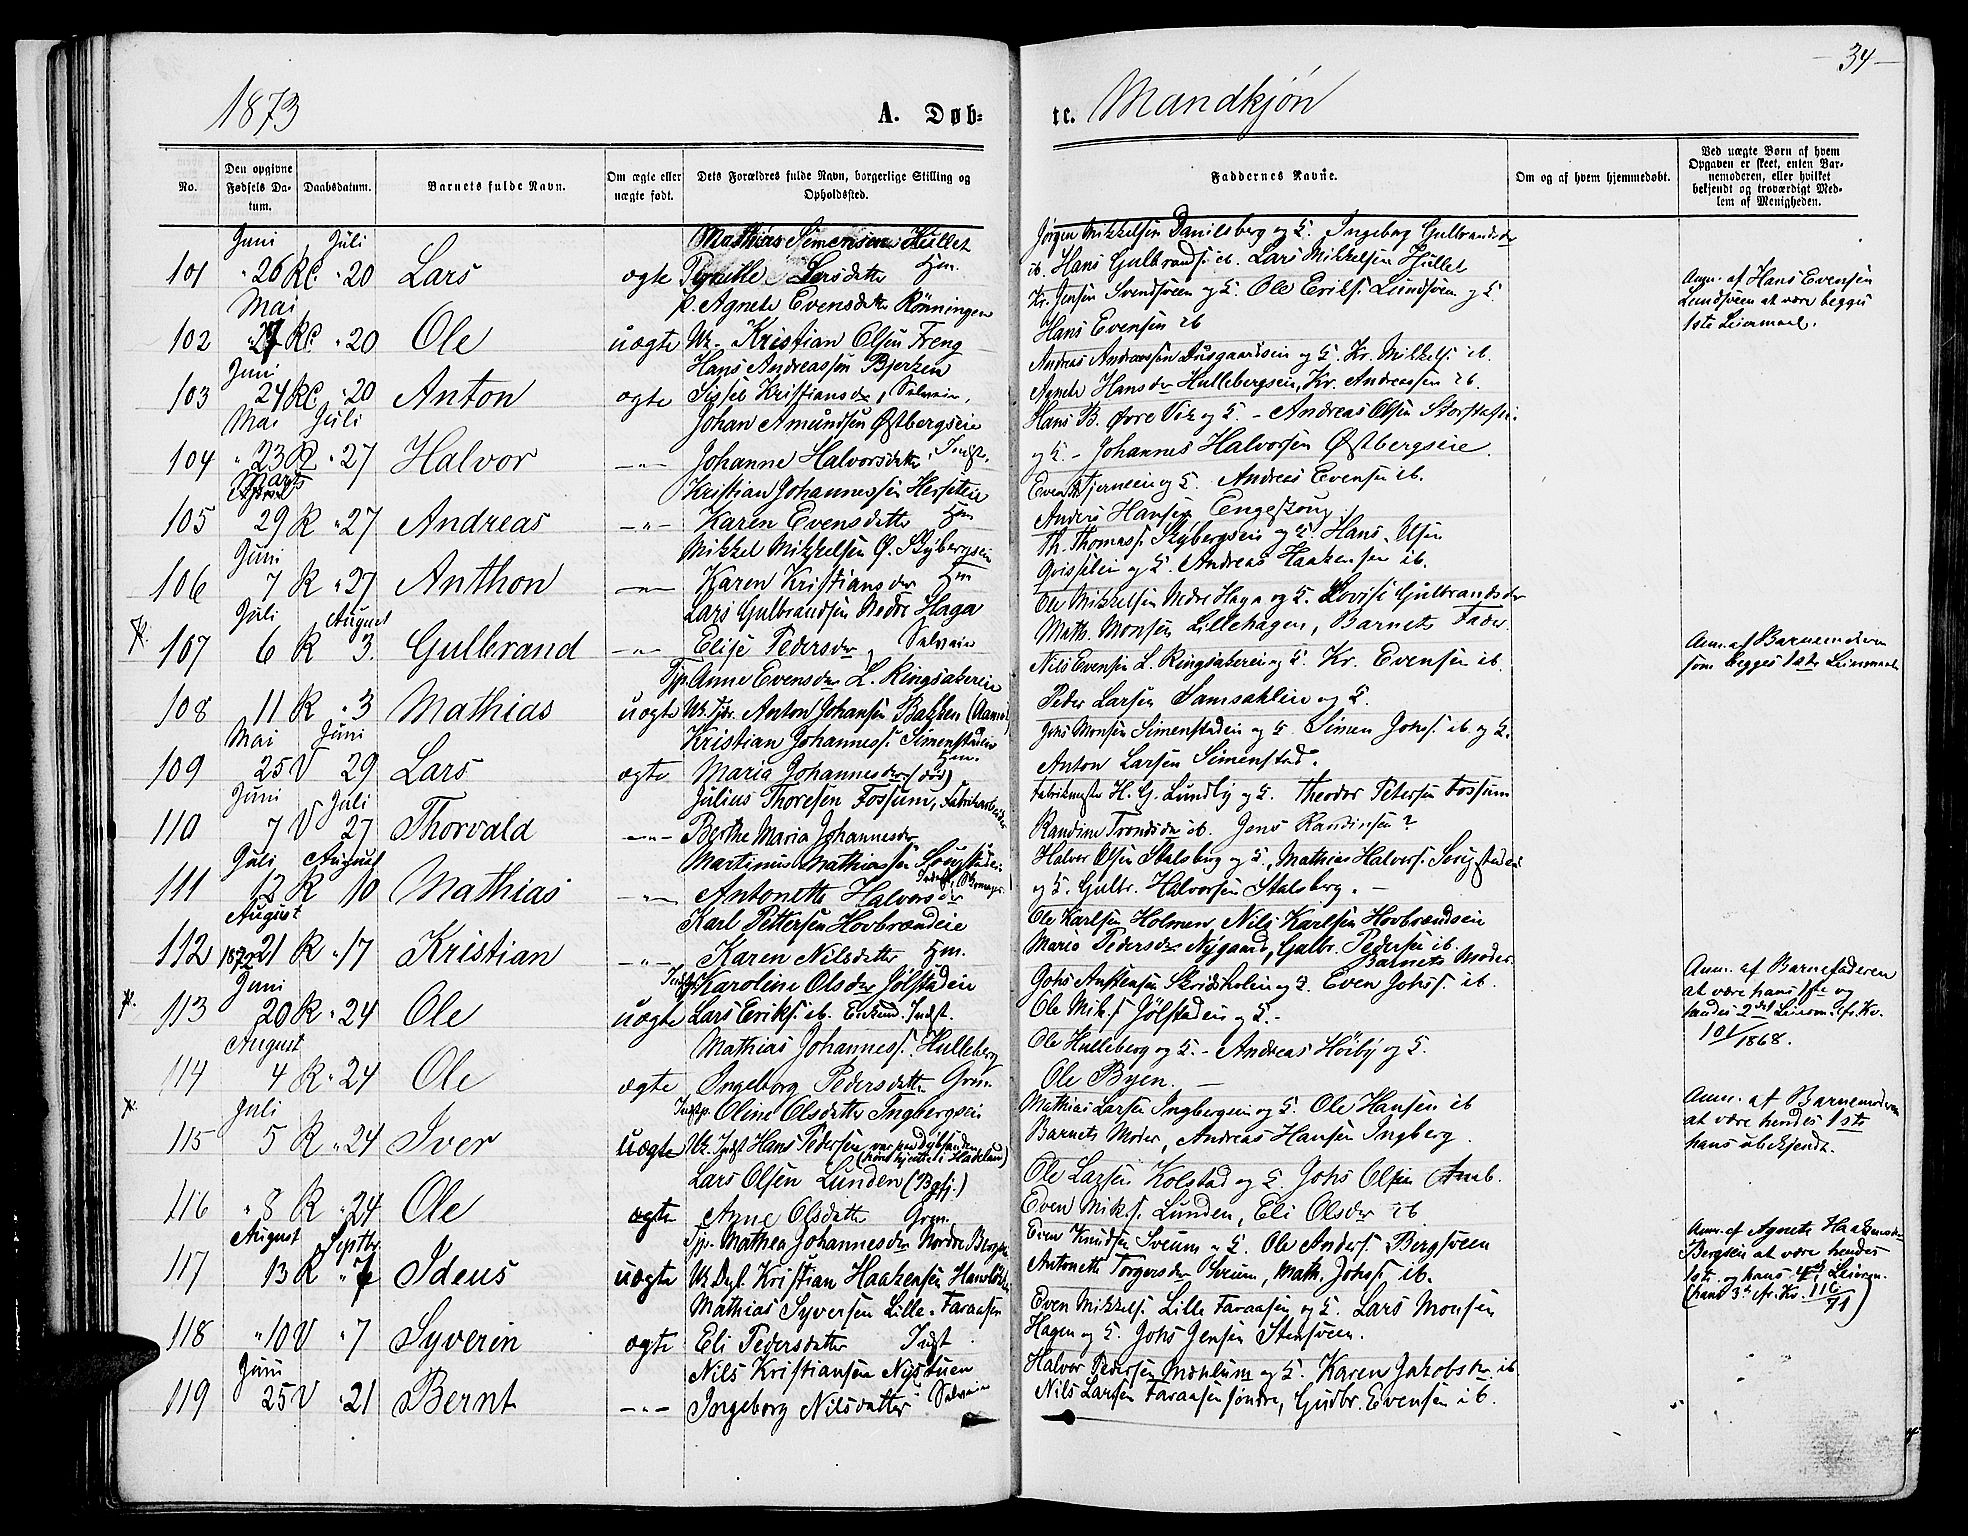 1873
A. Døb-
te. Mandkjøn
34
No.
Den opgivne Fødsels Datum.
Daabsdatum.
Barnets fulde Navn.
Om ægte eller uægte født.
Dets Forældres fulde Navn, borgerlige Stilling og Opholdssted.
Faddernes Navne.
Om og af hvem hjemmedøbt.
Ved uægte Børn af hvem Opgaven er skeet, enten Barnemoderen, eller hvilket bekjendt og troværdigt Medlem af Menigheden.
Juni Juli Mathias Simensen Hullet Jørgen Mikkelsen Danilsberg og H. Ingeborg Gulbrandsdr
101 " 26 RC. " 20 Lars ægte Pernille Larsdatter Hm. ib. Hans Gulbrands. ib. Lars Mikkelsen Hullet
Mai p. Agnete Evensdatter Rönningen Kr. Jensen Svendsveen og H. Ole Eriks. Lundsveen og H
102 27 RC. " 20 Ole uægte Uk. Kristian Olsen Freng Hans Evensen ib
Anm. af Hans Evensen
Lundsveen at være begges
1ste Leiermaal.
Juni Hans Andreassen Bjerken
103 24 RC. " 20 Anton ægte Sissel Kristiansdr, Selveier. Agnete Hansdr Hullebergseie, Kr. Andreassen ib.
Mai Juli Johan Amundsen Østbergseie Hans B. Øvre Vik og H. - Andreas Olsen
104 " 23 R " 27 Halvor -"- Johanne Halvorsdatter, Indst. og H. - Johannes Halvorsen Østbergseie.
Marts Kristian Johannessen Andreas Evensen ib.
105 29 R " 27 Andreas -"- Karen Evensdatter Hm Anders Hansen
Juni Mikkel Mikkelsen Ø. Skybergseie Th. Thomass. Skybergseie og H. Hans Olsen
106 7 R " 27 Anthon -"- Karen Kristiansdr Hm og H. Andreas Haakensen ib.
Juli August Lars Gulbrandsen Nedre Haga Ole Mikkelsen Nedre Haga og H. Lovise Gulbrandsdr
107 6 R 3. Gulbrand -"- Elise Pedersdr Selveier Math. Monsen Lillehagen, Barnets Fader.
Tjp. Anne Evensdr L. Ringsakereie Nils Evensen L. Ringsakereie og H. Kr. Evensen ib.
108 11 R " 3 Mathias uægte Uk. Tjdr. Anton Johansen Bakken Peder Larsen Samsahleie og H.
Anm. af Barnemoderen
som begges 1ste Leiermaal
Mai Juni Kristian Johanness. Simenstadeie Johs Monsen Simenstadeie og H. Simen Johs. ib. og H.
109 25 V 29 Lars ægte Maria Johannesdr Hm. Anton Larsen Simenstad.
Juni Juli Julius Thoresen Fossum, Fabrikarbeider H. G. Lundby og H. Theodor Petersen Fossum
110 7 V 27 Thorvald -"- Berthe Maria Johannesdr Randine Trondsdr ib. Jens Randinsen?
Juli August Martinus Mathiassen Halvor Olsen Stalsberg og H., Mathias Halvors.
111 12 R 10 Mathias -"- Antonette Halvorsdr og H. Gulbr. Halvorsen Stalsberg. -
August Karl Pettersen Hovbrændeie Ole Karlsen Holmen, Nils Karlsen Hovbrændeie
112 1872 21 R " 17 Kristian -"- Karen Nilsdatter Hm. Maria Pedersdr Nygaard, Gulbr. Pedersen ib. Barnets Moder.
Juni Karoline Olsdr Jølstadeie Johs Anstensen og H. Even Johs. ib.
113 20 R " 24 Ole uægte Lars Eriks. ib. Enkmd. Indst. Ole Mik.s Jølstadeie og H. -
Anm. af Barnefaderen
at være hans 1ste og
hendes 2det Leierm. cfr. Kv.
101/1868.
August Mathias Johanness. Hulleberg Ole Hulleberg og H. - Andreas Høiby og H.
114 4 R " 24 Ole ægte Ingeborg Pedersdatter Grm. Ole Byen. -
Juli Indstp. Oline Olsdatter Ingbergseie Mathias Larsen Ingbergseie og H. Ole Hansen ib
115 5 R " 24 Iver uægte Uk. Indst Hans Pedersen Barnets Moder, Andreas Hansen Ingberg.
Anm. af Barnemoderen
at være hendes 1ste
hans ubekjendt.
Lars Olsen Lunden Ole Larsen Kolstad og H. Johs Olsen
116 " 8 R " 24 Ole ægte Anne Olsdatter Grm. Even Mik.s. Lunden, Eli Olsdr ib
August Septbr Tjp. Mathea Johannesdr Nordre Even Knudsen Sveum og H. Ole Anders. Bergsveen
117 13 R " 7 Ideus uægte Uk Kristian Haakensen Antonette Torgersdr Sveum, Math. Johs. ib.
Anm. af Agnete Haakensdr
Bergseie at være hendes
1ste og hans 4de Leierm.
(hans 3die cfr. Kv. 116/71)
Mathias Syversen Lille-Faraasen Even Mikkels. Lille Faraasen og H. Lars Monsen
118 " 10 V " 7 Syverin ægte Eli Pedersdatter Indst Hagen og H. Johs Jensen Stensveen.
Juni Nils Kristiansen Nystuen Halvor Pedersen Mæhlum og H. Karen Jakobsdr ib
119 25 V " 21 Bernt -"- Ingeborg Nilsdatter Selveier Nils Larsen Faraasen søndre, Gudbr. Evensen ib.